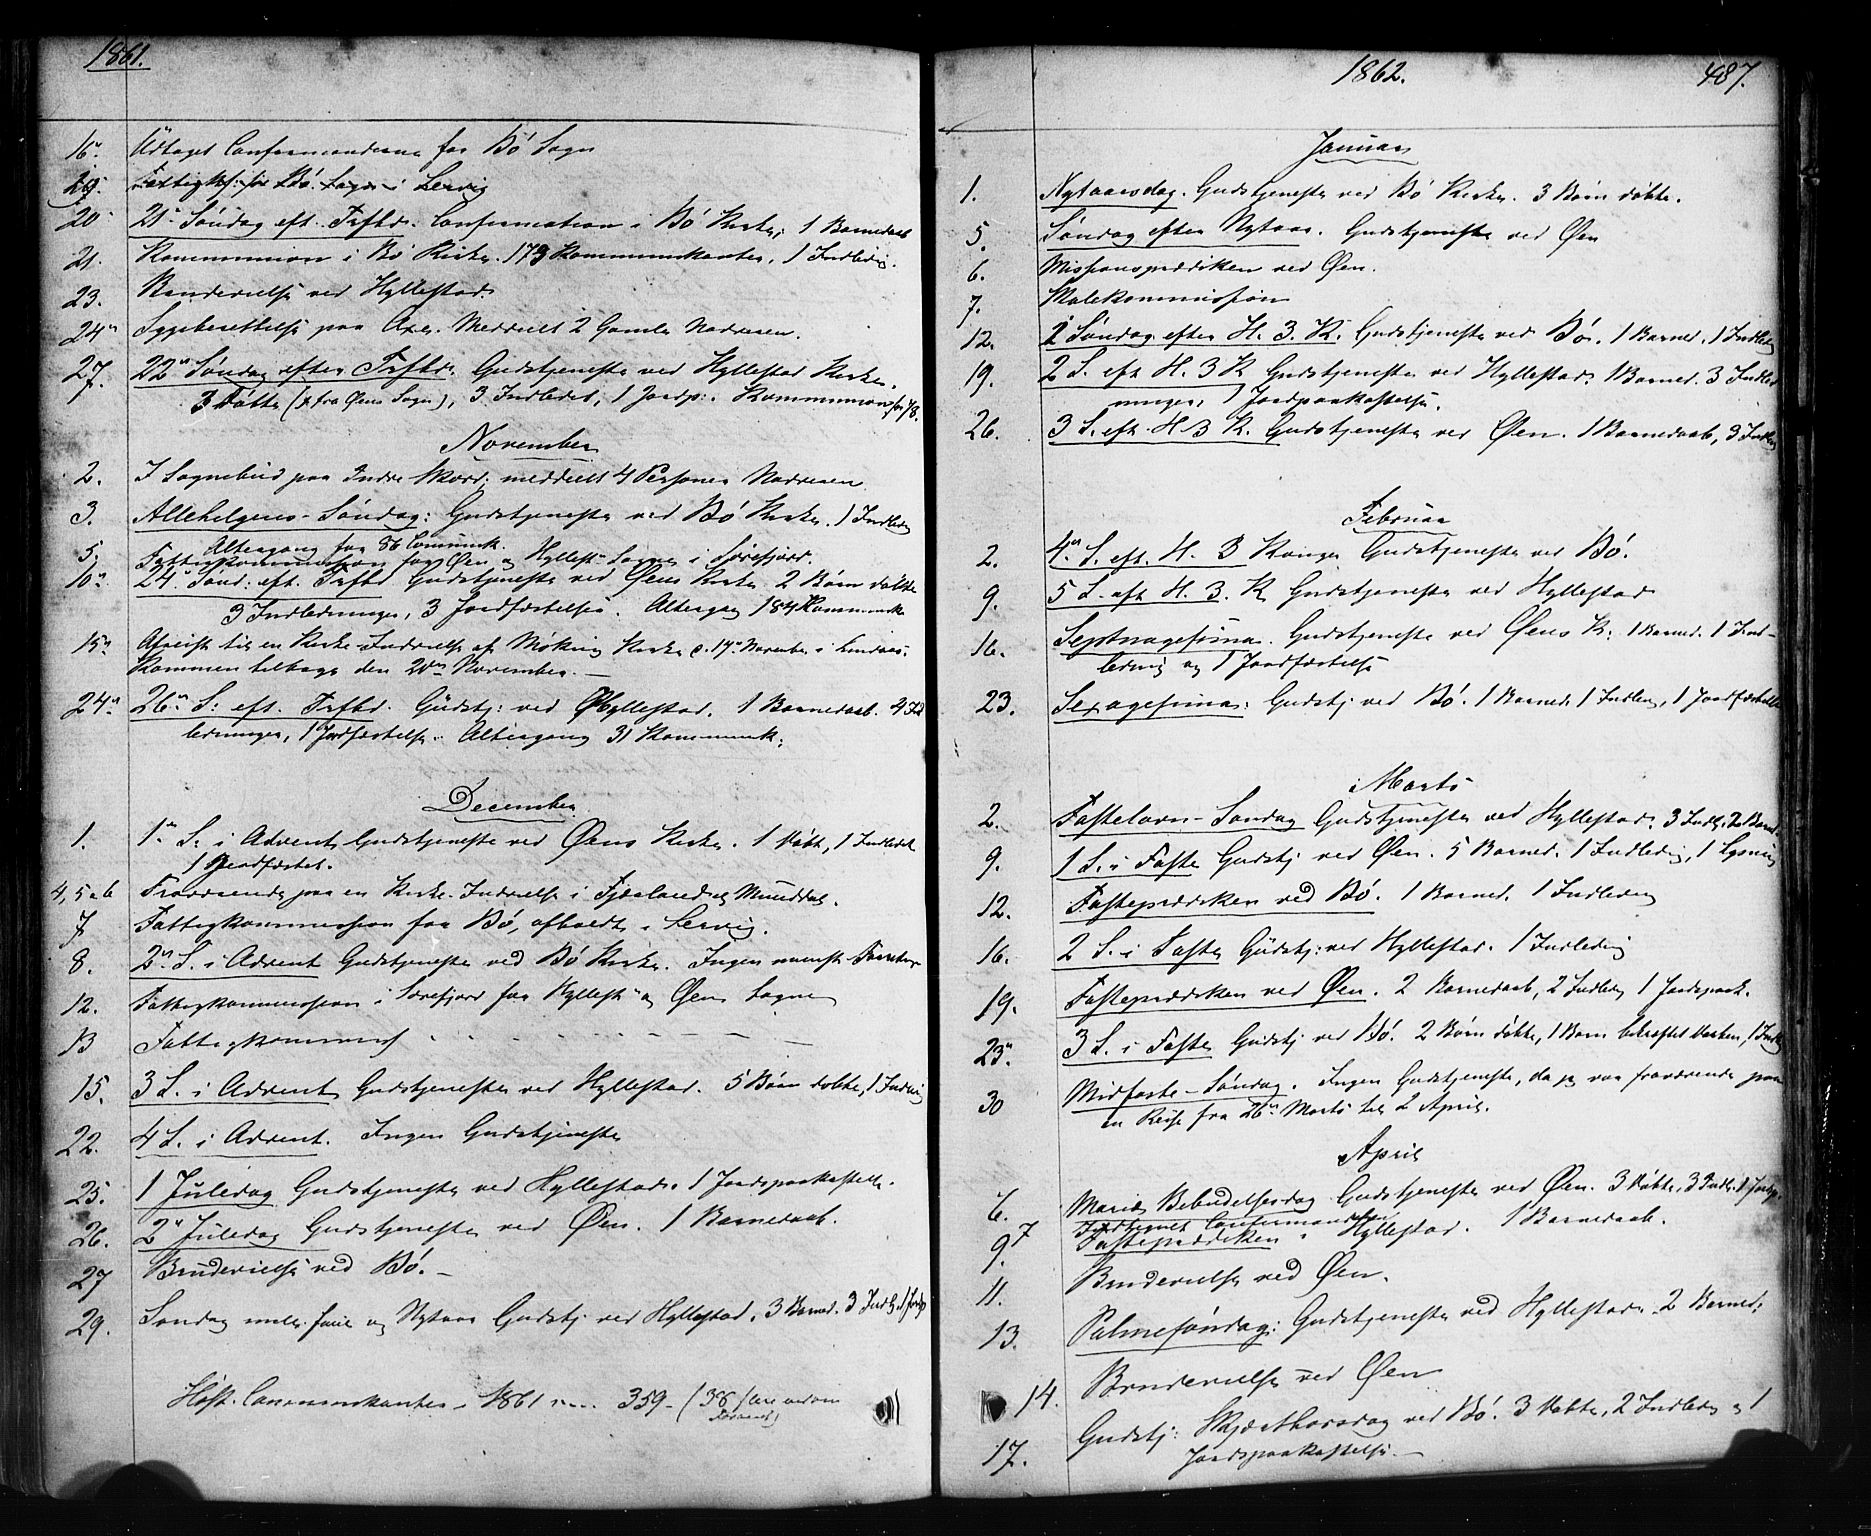 1861.
16n. Udtaget Confirmanderne for Bø Sogn
29. Fattigk: for Bø Sogn i Lervig
20 21n Søndag eft. Trfbd. Confirmation i Bø Kirke, 1 Barnedaab
21. Kommunion i Bø Kirke. 173 Kommunikanter, 1 Indledng.
23. Brudevielse ved Hyllestad.
24n Sygeberettelse paa Meddeelt 2 Gamle Nadveren.
27. 22n Søndag efter Trfbd. Gudstjeneste ved Hyllestad Kirke.
3 Døbte (1 fra Øens Sogn), 3 Indledet, 1 Jordp: Kommunion for 78.
November
2. I Sognebud paa Indre meddeelt 4 Personer Nadveren
3. Allehelgens-Søndag: Gudstjeneste ved Bø Kirke. 1 Indledng
Altergang for 86 Communik.
5. Fattigkommission for Øen og Hyllest. Sogne i Sørefjord.
10n 24n Sønd: eft. Trfbd Gudstjeneste ved Øens Kirke 2 Børn døbte
3 Indledninger, 3 Jordfæstelse. Altergang 184 Kommunik
15n Afreist til en Kirke-Indvielse af Kirke d. 17n November i Lindaas.
Kommen tilbage den 20n November. —
24n 26n S: eft. Trfbd. Gudstj: ved Hyllestad. 1 Barnedaab. 4 Ind
ledninger, 1 Jordfæstelse. Altergang 31 Kommunik:
December
1. 1n S. i Advent, Gudstjeneste ved Øens Kirke. 1 Døbt, 1 Indledet
1 Jordfæstet.
4, 5 & 6 Fraværende paa en Kirke-Indvielse i Fjærland og Munddal.
7 Fattigkommission for Bø, afholdt i Lervig.
8. 2n S. i Advent Gudstjeneste ved Bø Kirke. Ingen
12. Fattigkommission i Sørefjord for Hyllest. og Øens Sogne
13 Fattigkommis — — —
15. 3 S. i Advent Gudstjeneste ved Hyllestad. 5 Børn døbte, 1 Indledng
22. 4 S. i Advent. Ingen Gudstjeneste
25. 1 Juledag Gudstjeneste ved Hyllestad. 1 Jordpaakastelse.
26. 2n Juledag Gudstjeneste ved Øen. 1 Barnedaab.
27 Brudevielse ved Bø. —
29. Søndag mell. Juul og Nytaar Gudstj ved Hyllestad. 3 Barned. 3 Indl. 1 Jordp
Høst. Communikanter 1861 359 — (38 flere end
1862. 487.
Januar
1. Nytaarsdag. Gudstjeneste ved Bø Kirke. 3 Børn døbte.
5. Søndag efter Nytaar. Gudstjeneste ved Øen
6. Missionsprædiken ved Øen.
7. Skolekommission
12. 1 Søndag efter H. 3. K. Gudstjeneste ved Bø. 1 Barned. 1 Indledng
19. 2 S. eft H. 3 K Gudstjeneste ved Hyllestad. 1 Barned. 3 Indled
ninger, 1 Jordpaakastelse.
26. 3 S. eft. H 3 K. Gudstjeneste ved Øen. 1 Barnedaab, 3 Indledng
Februar
2. 4n S. eft. H. 3 Konger Gudstjeneste ved Bø.
9. 5 S. eft H. 3. K Gudstjeneste ved Hyllestad
16. Septuagesima. Gudstjeneste ved Øens K. 1 Barned. 1 Ind-
ledning og 1 Jordfæstelse
23. Sexagesima: Gudstj ved Bø. 1 Barned. 1 Indledng, 1 Jordfæstelse
Marts
2. Fastelavn-Søndag Gudstjeneste ved Hyllestad. 3 Indl. 2 Barned.
9. 1 S. i Faste Gudstj ved Øen. 5 Barned. 1 Indledng, 1 Lysning
12. Fasteprædiken ved Bø. 1 Barned. 1 Indledng
16. 2 S. i Faste Gudstj: ved Hyllestad. 1 Indledng
19. Fasteprædiken ved Øen. 2 Barnedaab, 2 Indledng 1 Jordspaak.
23n 3 S. i Faste Gudstj ved Bø. 2 Børn døbte, 1 Barn bekræftet Daaben, 1 Indledg
30 Midfaste-Søndag. Ingen Gudstjeneste, da jeg var fraværende paa
en Reise fra 26n Marts til 2 April.
April
6. Mariæ Bebudelsesdag Gudstjeneste ved Øen. 3 Døbte, 3 Indl. 1 Jordp.
7 Indtegnet Confirmander
9. Fasteprædiken i Hyllestad. 1 Barnedaab.
11. Brudevielse ved Øen.
13. Palmesøndag: Gudstjeneste ved Hyllestad. 2 Barned:
14. Brudevielse ved Øen
17. Gudstj: Skjærthorsdag ved Bø. 3 Døbte, 2 Indledng og 1
Jordpaakastelse. —